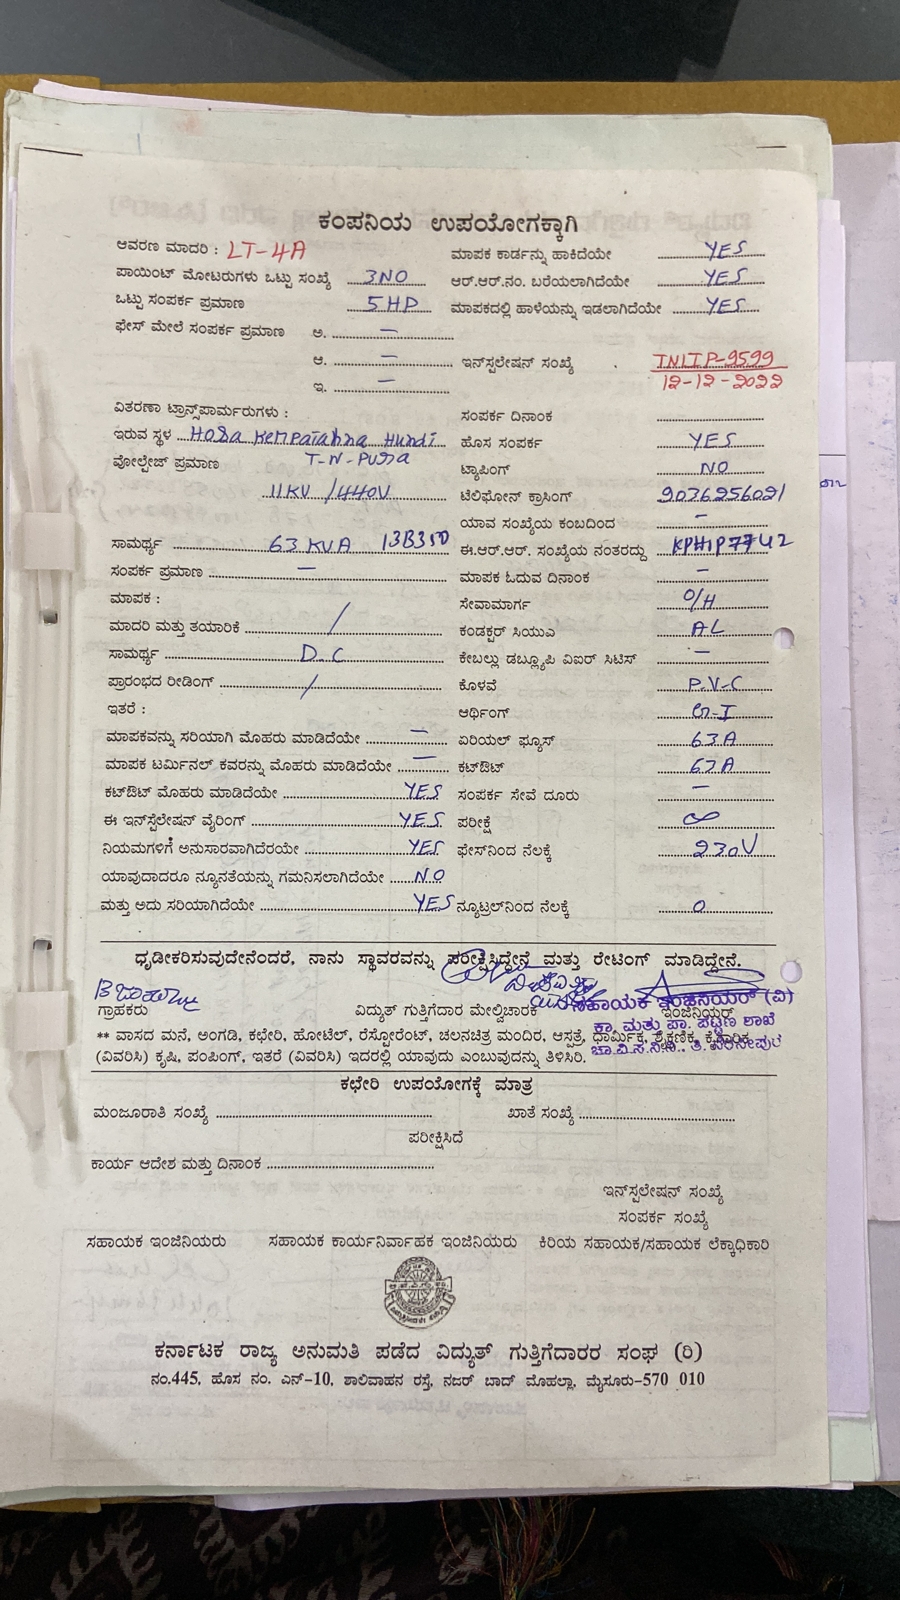 ಕಂಪನಿಯ ಉಪಯೋಗಕ್ಕಾಗಿ
ಆವರಣ ಮಾದರಿ : LT-4A
ಮಾಪಕ ಕಾರ್ಡನ್ನು ಹಾಕಿದೆಯೇ YES
ಪಾಯಿಂಟ್ ಮೋಟರುಗಳು ಒಟ್ಟು ಸಂಖ್ಯೆ 3NO
ಆರ್.ಆರ್.ನಂ. ಬರೆಯಲಾಗಿದೆಯೇ YES
ಒಟ್ಟು ಸಂಪರ್ಕ ಪ್ರಮಾಣ 5HP
ಮಾಪಕದಲ್ಲಿ ಹಾಳೆಯನ್ನು ಇಡಲಾಗಿದೆಯೇ YES
ಫೇಸ್ ಮೇಲೆ ಸಂಪರ್ಕ ಪ್ರಮಾಣ ಅ. —
ಆ. —
ಇನ್‌ಸ್ಪಲೇಷನ್ ಸಂಖ್ಯೆ TNITP-9599
ಇ. —
12-12-2022
ವಿತರಣಾ ಟ್ರಾನ್ಸ್‌ಪಾರ್ಮರುಗಳು :
ಸಂಪರ್ಕ ದಿನಾಂಕ
ಇರುವ ಸ್ಥಳ Hosa Kempaiahna Hundi
ಹೊಸ ಸಂಪರ್ಕ YES
ವೋಲ್ಟೇಜ್ ಪ್ರಮಾಣ T-N-Pura
ಟ್ಯಾಪಿಂಗ್ NO
11KV /440V
ಟೆಲಿಫೋನ್ ಕ್ರಾಸಿಂಗ್ 9036256021
ಯಾವ ಸಂಖ್ಯೆಯ ಕಂಬದಿಂದ –
ಸಾಮರ್ಥ್ಯ 63 KVA
ಈ.ಆರ್.ಆರ್. ಸಂಖ್ಯೆಯ ನಂತರದ್ದು
ಸಂಪರ್ಕ ಪ್ರಮಾಣ —
ಮಾಪಕ ಓದುವ ದಿನಾಂಕ –
ಮಾಪಕ :
ಸೇವಾಮಾರ್ಗ O/H
ಮಾದರಿ ಮತ್ತು ತಯಾರಿಕೆ /
ಕಂಡಕ್ಟರ್ ಸಿಯುಎ AL
ಸಾಮರ್ಥ್ಯ D.C
ಕೇಬಲ್ಲು ಡಬ್ಲ್ಯೂಪಿ ವಿಐರ್ ಸಿಟಿಸ್ —
ಪ್ರಾರಂಭದ ರೀಡಿಂಗ್ /
ಕೊಳವೆ P.V-C
ಇತರೆ :
ಆರ್ಥಿಂಗ್ G-I
ಮಾಪಕವನ್ನು ಸರಿಯಾಗಿ ಮೊಹರು ಮಾಡಿದೆಯೇ —
ಏರಿಯಲ್ ಫ್ಯೂಸ್ 63A
ಮಾಪಕ ಟರ್ಮಿನಲ್ ಕವರನ್ನು ಮೊಹರು ಮಾಡಿದೆಯೇ —
ಕಟ್‌ಔಟ್ 63A
ಕಟ್‌ಔಟ್ ಮೊಹರು ಮಾಡಿದೆಯೇ YES
ಸಂಪರ್ಕ ಸೇವೆ ದೂರು –
ಈ ಇನ್‌ಸ್ಟೆಲೇಷನ್ ವೈರಿಂಗ್ YES
ಪರೀಕ್ಷೆ ∞
ನಿಯಮಗಳಿಗೆ ಅನುಸಾರವಾಗಿದೆರಯೇ YES
ಫೇಸ್‌ನಿಂದ ನೆಲಕ್ಕೆ 230V
ಯಾವುದಾದರೂ ನ್ಯೂನತೆಯನ್ನು ಗಮನಿಸಲಾಗಿದೆಯೇ NO
ಮತ್ತು ಅದು ಸರಿಯಾಗಿದೆಯೇ YES
ನ್ಯೂಟ್ರಲ್‌ನಿಂದ ನೆಲಕ್ಕೆ 0
ಧೃಡೀಕರಿಸುವುದೇನೆಂದರೆ, ನಾನು ಸ್ಥಾವರವನ್ನು ಪರೀಕ್ಷಿಸಿದ್ದೇನೆ ಮತ್ತು ರೇಟಿಂಗ್ ಮಾಡಿದ್ದೇನೆ.
ಸಹಾಯಕ ಇಂಜಿನಿಯರ್ (ವಿ)
ಗ್ರಾಹಕರು ವಿದ್ಯುತ್ ಗುತ್ತಿಗೆದಾರ ಮೇಲ್ವಿಚಾರಕ ಇಂಜಿನಿಯರ್
ಕಾ. ಮತ್ತು ಪಾ. ಪಟ್ಟಣ ಶಾಖೆ
** ವಾಸದ ಮನೆ, ಅಂಗಡಿ, ಕಛೇರಿ, ಹೋಟೆಲ್, ರೆಸ್ಟೋರೆಂಟ್, ಚಲನಚಿತ್ರ ಮಂದಿರ, ಆಸ್ಪತ್ರೆ, ಧಾರ್ಮಿಕ, ಶೈಕ್ಷಣಿಕ, ಕೈಗಾರಿಕ
(ವಿವರಿಸಿ) ಕೃಷಿ, ಪಂಪಿಂಗ್, ಇತರೆ (ವಿವರಿಸಿ) ಇದರಲ್ಲಿ ಯಾವುದು ಎಂಬುವುದನ್ನು ತಿಳಿಸಿರಿ.
ಚಾ.ವಿ.ಸ.ನಿ.ನಿ., ತಿ. ನರಸೀಪುರ
ಕಛೇರಿ ಉಪಯೋಗಕ್ಕೆ ಮಾತ್ರ
ಮಂಜೂರಾತಿ ಸಂಖ್ಯೆ ಖಾತೆ ಸಂಖ್ಯೆ
ಪರೀಕ್ಷಿಸಿದೆ
ಕಾರ್ಯ ಆದೇಶ ಮತ್ತು ದಿನಾಂಕ
ಇನ್‌ಸ್ಪಲೇಷನ್ ಸಂಖ್ಯೆ
ಸಂಪರ್ಕ ಸಂಖ್ಯೆ
ಸಹಾಯಕ ಇಂಜಿನಿಯರು ಸಹಾಯಕ ಕಾರ್ಯನಿರ್ವಾಹಕ ಇಂಜಿನಿಯರು ಕಿರಿಯ ಸಹಾಯಕ/ಸಹಾಯಕ ಲೆಕ್ಕಾಧಿಕಾರಿ
ಕರ್ನಾಟಕ ರಾಜ್ಯ ಅನುಮತಿ ಪಡೆದ ವಿದ್ಯುತ್ ಗುತ್ತಿಗೆದಾರರ ಸಂಘ (ರಿ)
ನಂ.445, ಹೊಸ ನಂ. ಎನ್-10, ಶಾಲಿವಾಹನ ರಸ್ತೆ, ನಜರ್ ಬಾದ್ ಮೊಹಲ್ಲಾ, ಮೈಸೂರು-570 010